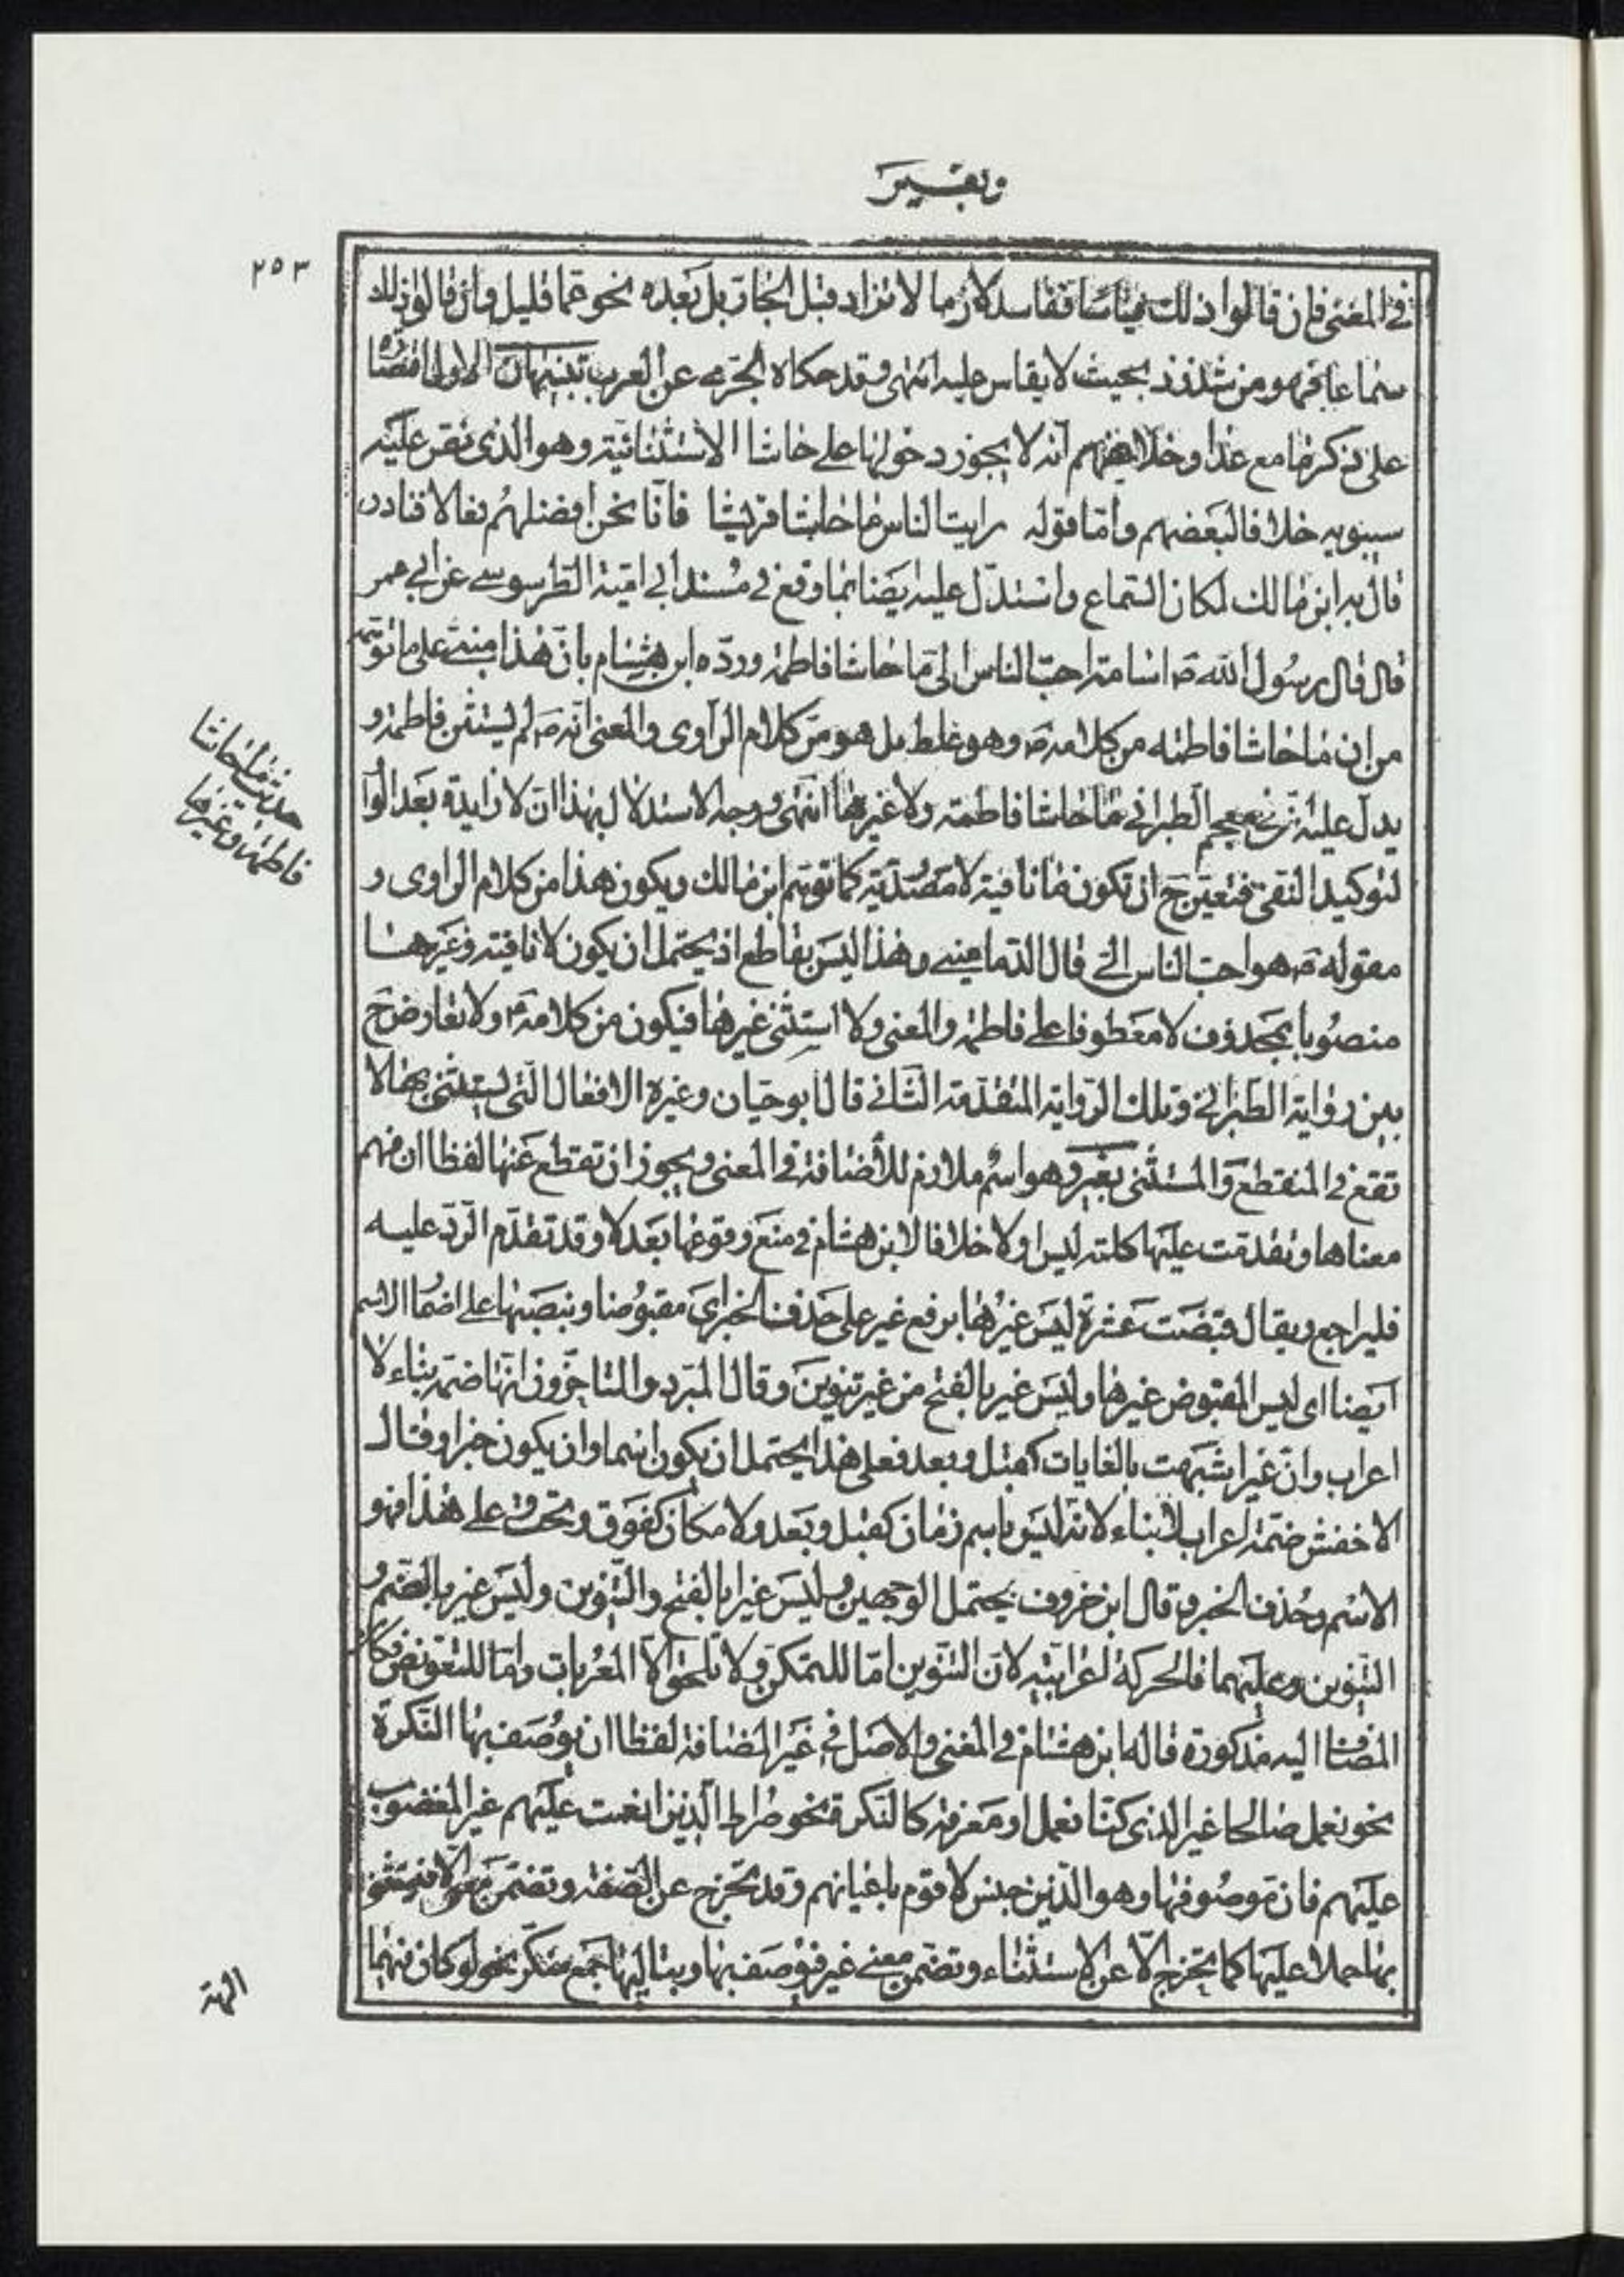 وبغير
٢٥٣
في المغنى فان قالوا ذلك قياسا ففاسد لان ما لا تزاد قبل الجار بل بعده نحو عما قليل وان قالوا ذلك
سماعا فهو من شذوذ بحيث لا يقاس عليه انتهى وقد حكاه الجرمى عن العرب تنبيهان الاول اقتصاره
على ذكر ما مع عدا وخلا يفهم انه لا يجوز دخولها على حاشا الاستثنائية وهو الذى نص عليه
سيبويه خلافا لبعضهم واما قوله رايت الناس ما حاشا قريشا فانا نحن افضلهم فعالا فنادر
قال به ابن مالك لمكان السماع واستدل عليه ايضا بما وقع فى مسند ابى امية الطرسوسى عن ابى عمر
قال قال رسول الله ص اسامة احب الناس الى ما حاشا فاطمة ورده ابن هشام بان هذا مبنى على ما توهمه
من ان ما حاشا فاطمه من كلامه ص وهو غلط بل هو من كلام الراوى والمعنى انه ص لم يستثن فاطمة و
يدل عليه ان فى معجم الطبرانى ما حاشا فاطمة ولا غيرها انتهى ووجه الاستدلال بهذا ان لا زايدة بعد الواو
لتوكيد النفى فتعين ح ان تكون ما نافية لا مصدرية كما توهم ابن مالك ويكون هذا من كلام الراوى و
مقوله ص هو احب الناس الى قال الدمامينى وهذا ليس بقاطع اذ يحتمل ان يكون لا نافيته وغيرها
منصوبا بمحذوف لا معطوفا على فاطمة والمعنى ولا استثنى غيرها فيكون من كلامه ص ولا تعارض ح
بين رواية الطبرانى وتلك الرواية المتقدمة الثانى قال ابو حيان وغيره الافعال التى يستثنى بها لا
تقع فى المنقطع والمستثنى بغير وهو اسم ملازم للاضافة فى المعنى ويجوز ان تقطع عنها لفظا ان فهم
معناها وتقدمت عليها كلمة ليس او لا خلافا لابن هشام فى منع وقوعها بعد لا وقد تقدم الرد عليه
فليراجع ويقال قبضت عشرة ليس غيرها برفع غير على حذف الخبر اى مقبوضا وبنصبها على اضمار الاسم
ايضا اى ليس المقبوض غيرها وليس غير بالفتح من غير تنوين وقال المبرد والمتاخرون انها ضمة بناء لا
اعراب وان غيرا شبهت بالغايات كقبل وبعد فعلى هذا يحتمل ان يكون اسما وان يكون خبرا وقال
الاخفش ضمة اعراب لا بناء لانه ليس باسم زمان كقبل وبعد ولا مكان كفوق وتحت على هذا فهو
الاسم وحذف الخبر وقال ابن خروف يحتمل الوجهين وليس غيرا بالفتح والتنوين وليس غير بالضم و
التنوين وعليهما فالحركة اعرابية لان التنوين اما للتمكن ولا يلحق الا المعربات واما للتعويض فكان
المضاف اليه مذكورة قاله ابن هشام فى المغنى والاصل فى غير المضافة لفظا ان يوصف بها النكرة
نحو نعمل صالحا غير الذى كنا نعمل او معرفة كالنكرة نحو صراط الذين انعمت عليهم غير المغضوب
عليهم فان موصوفها وهو الذين جنس لا قوم باعيانهم وقد تخرج عن الصفة وتضمن معنى الا فيستثنى
بها حملا عليها كما تخرج الا عن الاستثناء وتضمن معنى غير فيوصف بها وبتاليها جمع منكر نحو لو كان فيهما
حديث ما حاشا
فاطمة وغيرها
الهة